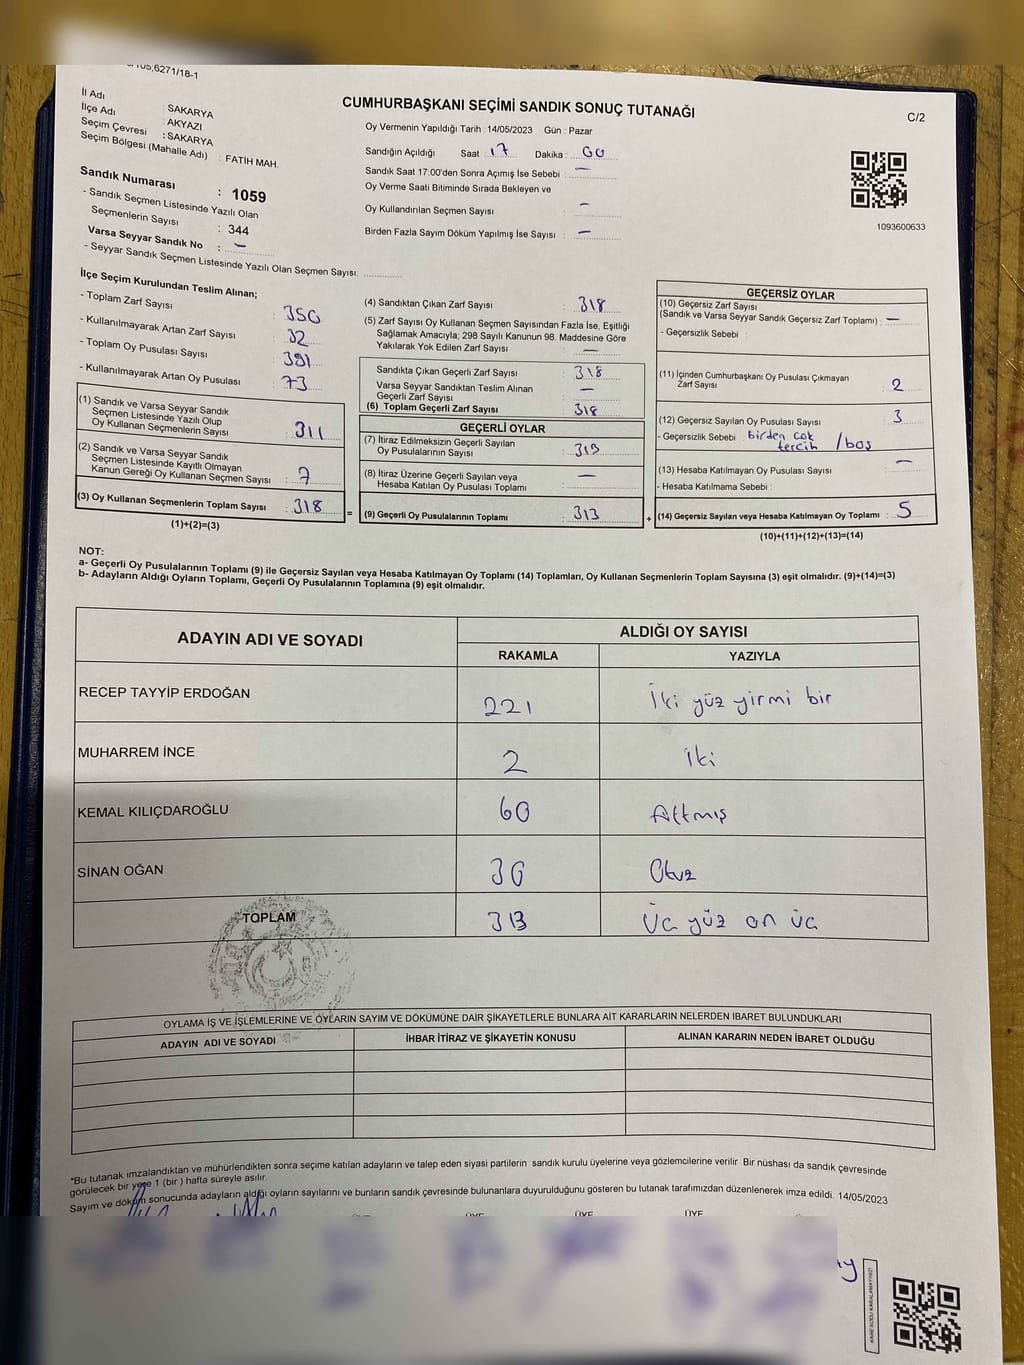 CUMHURBAŞKANI SEÇİMİ SANDIK SONUÇ TUTANAĞI
C/2
İl Adı : SAKARYA
İlçe Adı : AKYAZI
Seçim Çevresi : SAKARYA
Seçim Bölgesi (Mahalle Adı) : FATİH MAH.
Sandık Numarası : 1059
- Sandık Seçmen Listesinde Yazılı Olan
Seçmenlerin Sayısı : 344
Varsa Seyyar Sandık No : —
- Seyyar Sandık Seçmen Listesinde Yazılı Olan Seçmen Sayısı:
Oy Vermenin Yapıldığı Tarih : 14/05/2023 Gün : Pazar
Sandığın Açıldığı Saat : 17 Dakika : 00
Sandık Saat 17:00'den Sonra Açımış İse Sebebi : —
Oy Verme Saati Bitiminde Sırada Bekleyen ve
Oy Kullandırılan Seçmen Sayısı : —
Birden Fazla Sayım Döküm Yapılmış İse Sayısı : —
1093600633
İlçe Seçim Kurulundan Teslim Alınan;
- Toplam Zarf Sayısı : 350
- Kullanılmayarak Artan Zarf Sayısı : 32
- Toplam Oy Pusulası Sayısı : 391
- Kullanılmayarak Artan Oy Pusulası : 73
(1) Sandık ve Varsa Seyyar Sandık
Seçmen Listesinde Yazılı Olup
Oy Kullanan Seçmenlerin Sayısı : 311
(2) Sandık ve Varsa Seyyar Sandık
Seçmen Listesinde Kayıtlı Olmayan
Kanun Gereği Oy Kullanan Seçmen Sayısı : 7
(3) Oy Kullanan Seçmenlerin Toplam Sayısı : 318
(1)+(2)=(3)
(4) Sandıktan Çıkan Zarf Sayısı : 318
(5) Zarf Sayısı Oy Kullanan Seçmen Sayısından Fazla İse, Eşitliği
Sağlamak Amacıyla; 298 Sayılı Kanunun 98. Maddesine Göre
Yakılarak Yok Edilen Zarf Sayısı : —
Sandıkta Çıkan Geçerli Zarf Sayısı : 318
Varsa Seyyar Sandıktan Teslim Alınan
Geçerli Zarf Sayısı : —
(6) Toplam Geçerli Zarf Sayısı : 318
GEÇERLİ OYLAR
(7) İtiraz Edilmeksizin Geçerli Sayılan
Oy Pusulalarının Sayısı : 313
(8) İtiraz Üzerine Geçerli Sayılan veya
Hesaba Katılan Oy Pusulası Toplamı : —
= (9) Geçerli Oy Pusulalarının Toplamı : 313
GEÇERSİZ OYLAR
(10) Geçersiz Zarf Sayısı
(Sandık ve Varsa Seyyar Sandık Geçersiz Zarf Toplamı) : —
- Geçersizlik Sebebi :
(11) İçinden Cumhurbaşkanı Oy Pusulası Çıkmayan
Zarf Sayısı : 2
(12) Geçersiz Sayılan Oy Pusulası Sayısı : 3
- Geçersizlik Sebebi : birden çok
tercih / boş
(13) Hesaba Katılmayan Oy Pusulası Sayısı : —
- Hesaba Katılmama Sebebi :
+ (14) Geçersiz Sayılan veya Hesaba Katılmayan Oy Toplamı : 5
(10)+(11)+(12)+(13)=(14)
NOT:
a- Geçerli Oy Pusulalarının Toplamı (9) ile Geçersiz Sayılan veya Hesaba Katılmayan Oy Toplamı (14) Toplamları, Oy Kullanan Seçmenlerin Toplam Sayısına (3) eşit olmalıdır. (9)+(14)=(3)
b- Adayların Aldığı Oyların Toplamı, Geçerli Oy Pusulalarının Toplamına (9) eşit olmalıdır.
ADAYIN ADI VE SOYADI
ALDIĞI OY SAYISI
RAKAMLA YAZIYLA
RECEP TAYYİP ERDOĞAN 221 İki yüz yirmi bir
MUHARREM İNCE 2 İki
KEMAL KILIÇDAROĞLU 60 Altmış
SİNAN OĞAN 30 Otuz
TOPLAM 313 Üç yüz on üç
OYLAMA İŞ VE İŞLEMLERİNE VE OYLARIN SAYIM VE DÖKÜMÜNE DAİR ŞİKAYETLERLE BUNLARA AİT KARARLARIN NELERDEN İBARET BULUNDUKLARI
ADAYIN ADI VE SOYADI İHBAR İTİRAZ VE ŞİKAYETİN KONUSU ALINAN KARARIN NEDEN İBARET OLDUĞU
*Bu tutanak imzalandıktan ve mühürlendikten sonra seçime katılan adayların ve talep eden siyasi partilerin sandık kurulu üyelerine veya gözlemcilerine verilir. Bir nüshası da sandık çevresinde
görülecek bir yere 1 (bir) hafta süreyle asılır.
Sayım ve döküm sonucunda adayların aldığı oyların sayılarını ve bunların sandık çevresinde bulunanlara duyurulduğunu gösteren bu tutanak tarafımızdan düzenlenerek imza edildi. 14/05/2023
ÜYE ÜYE ÜYE